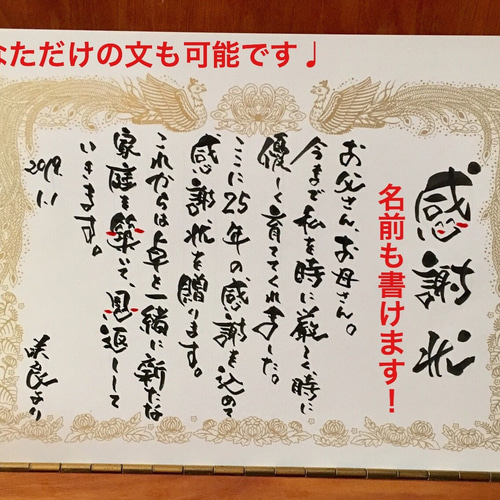 なただけの文も可能です♩
感謝状
名前も書けます！
お父さん、お母さん。
今まで私を時に厳しく時に
優しく育ててくれました。
ここに25年の感謝を込めて
感謝状を贈ります。
これからは卓と一緒に新たな
家庭を築いて、恩返しして
いきます。
2019.
1.1
より